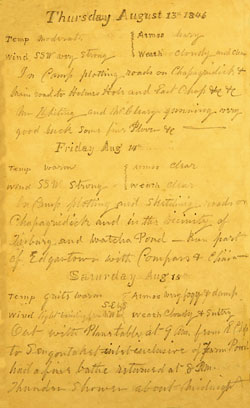 Thursday August 13th 1846
Temp moderate Atmos hazy
Wind SSW very Strong Weath cloudy and
In Camp plotting roads on Chapaquidick &
main road to Holmes Hole and East Chop &c &c
Mr and McCleary gunning very
good luck Some fine Plover &c
Friday Aug 14th
Temp warm Atmos clear
Wind SSW Strong Weath clear
In Camp plotting and Sketching roads on
Chapaquidick and in the vicinity of
and Watcha Pond – ran part
of Edgartown with Compass & Chain
Saturday Aug 15th
Temp quite warm Atmos very foggy & damp
Wind light Weath Cloudy & Sultry
Out with Planetable at 9 Am from
to exclusive of Farm Pond
had a fine bathe returned at 8 Pm
Thunder Shower about Midnight